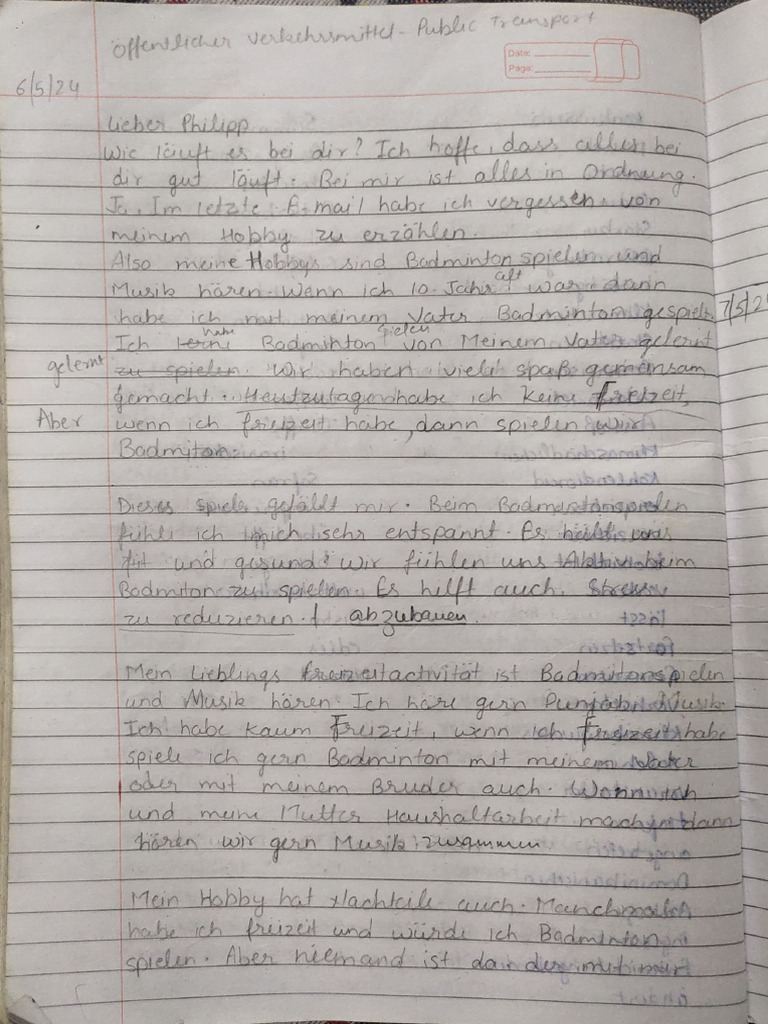 öffentlicher verkehrsmittel - Public Transport
Date:
Page:
6/5/24
Lieber Philipp
Wie läuft es bei dir? Ich hoffe, dass alles bei
dir gut läuft. Bei mir ist alles in Ordnung.
Ja, Im letzte E-mail habe ich vergessen von
meinem Hobby zu erzählen.
Also meine Hobbys sind Badminton spielen und
Musik hören. Wenn ich 10 Jahr alt war dann
habe ich mit meinem Vater Badminton gespielt. 7/5/24
Ich lerne habe Badminton spielen von Meinem Vater gelernt
gelernt zu spielen. Wir haben viel spaß gemeinsam
gemacht. Heutzutage habe ich keine Freizeit,
Aber wenn ich freizeit habe, dann spielen wir
Badmiton.
Dieses spiele gefällt mir. Beim Badmintonspielen
fühle ich mich sehr entspannt. Es hält uns
fit und gesund. Wir fühlen uns Aktiv beim
Badmiton zu spielen. Es hilft auch Stress
zu reduzieren. / abzubauen
Mein Lieblings freizeitactivität ist Badmitonspielen
und Musik hören. Ich höre gern Punjabi Musik.
Ich habe kaum Freizeit, wenn ich freizeit habe
spiele ich gern Badminton mit meinem Vater
oder mit meinem Bruder auch. Wenn ich
und meine Mutter Haushaltarbeit machen dann
hören wir gern Musik zusammen
Mein Hobby hat Nachteile auch. Manchmal
habe ich freizeit und würde ich Badminton
spielen. Aber niemand ist da der mit mir